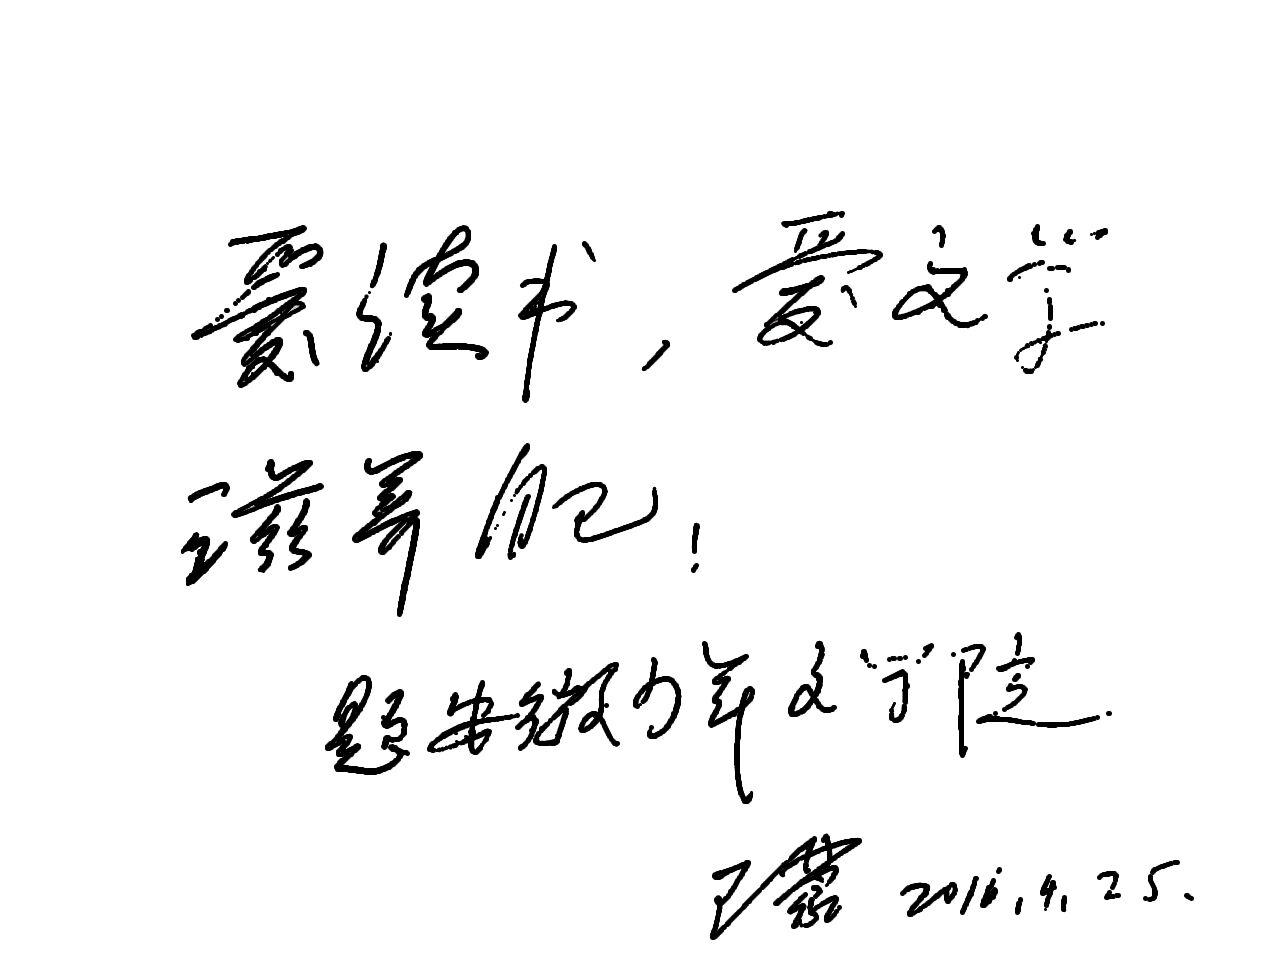 爱读书,爱文学
滋养自己!
题安徽少年文学院
王蒙 2016.4.25.